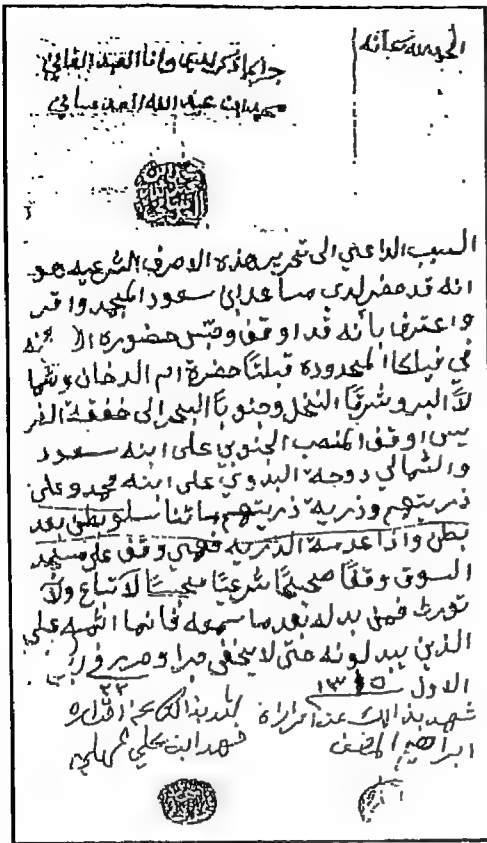 الحمد لله سبحانه
وانا العبد الفاني
محمد ابن عبد الله العدساني
السبب الداعي الى تحرير هذه الاحرف الشرعيه هو
انه قد حضر لدي مساعد ابن سعود المجمد واقر
واعترف بأنه قد اوقف وحبس حضوره
في فيلكا المحدوده قبلتاً حضرة ام الدخان وشما
لاً البر وشرقياً النخل وجنوباً البحر الى
اوقف المنصب الجنوبي على ابنه سعود
والشمالي دوحة البدوي على ابنه محمد وعلى
ذريتهم وذرية ذريتهم بطن بعد
بطن واذا عدمة الذريه فهي وقف على مسجد
السوق وقفاً صحيحاً شرعياً لا تباع ولا
تورث فمن بدله بعد ما سمعه فانما اثمه على
الذين يبدلونه حتى لا يخفى جرا وحرر في ٢٢ ر
الاول ١٣١٥
شهد بذالك عند اقراره
شهد بذالك عن اقراره
ابراهيم المضف
فهد ابن علي